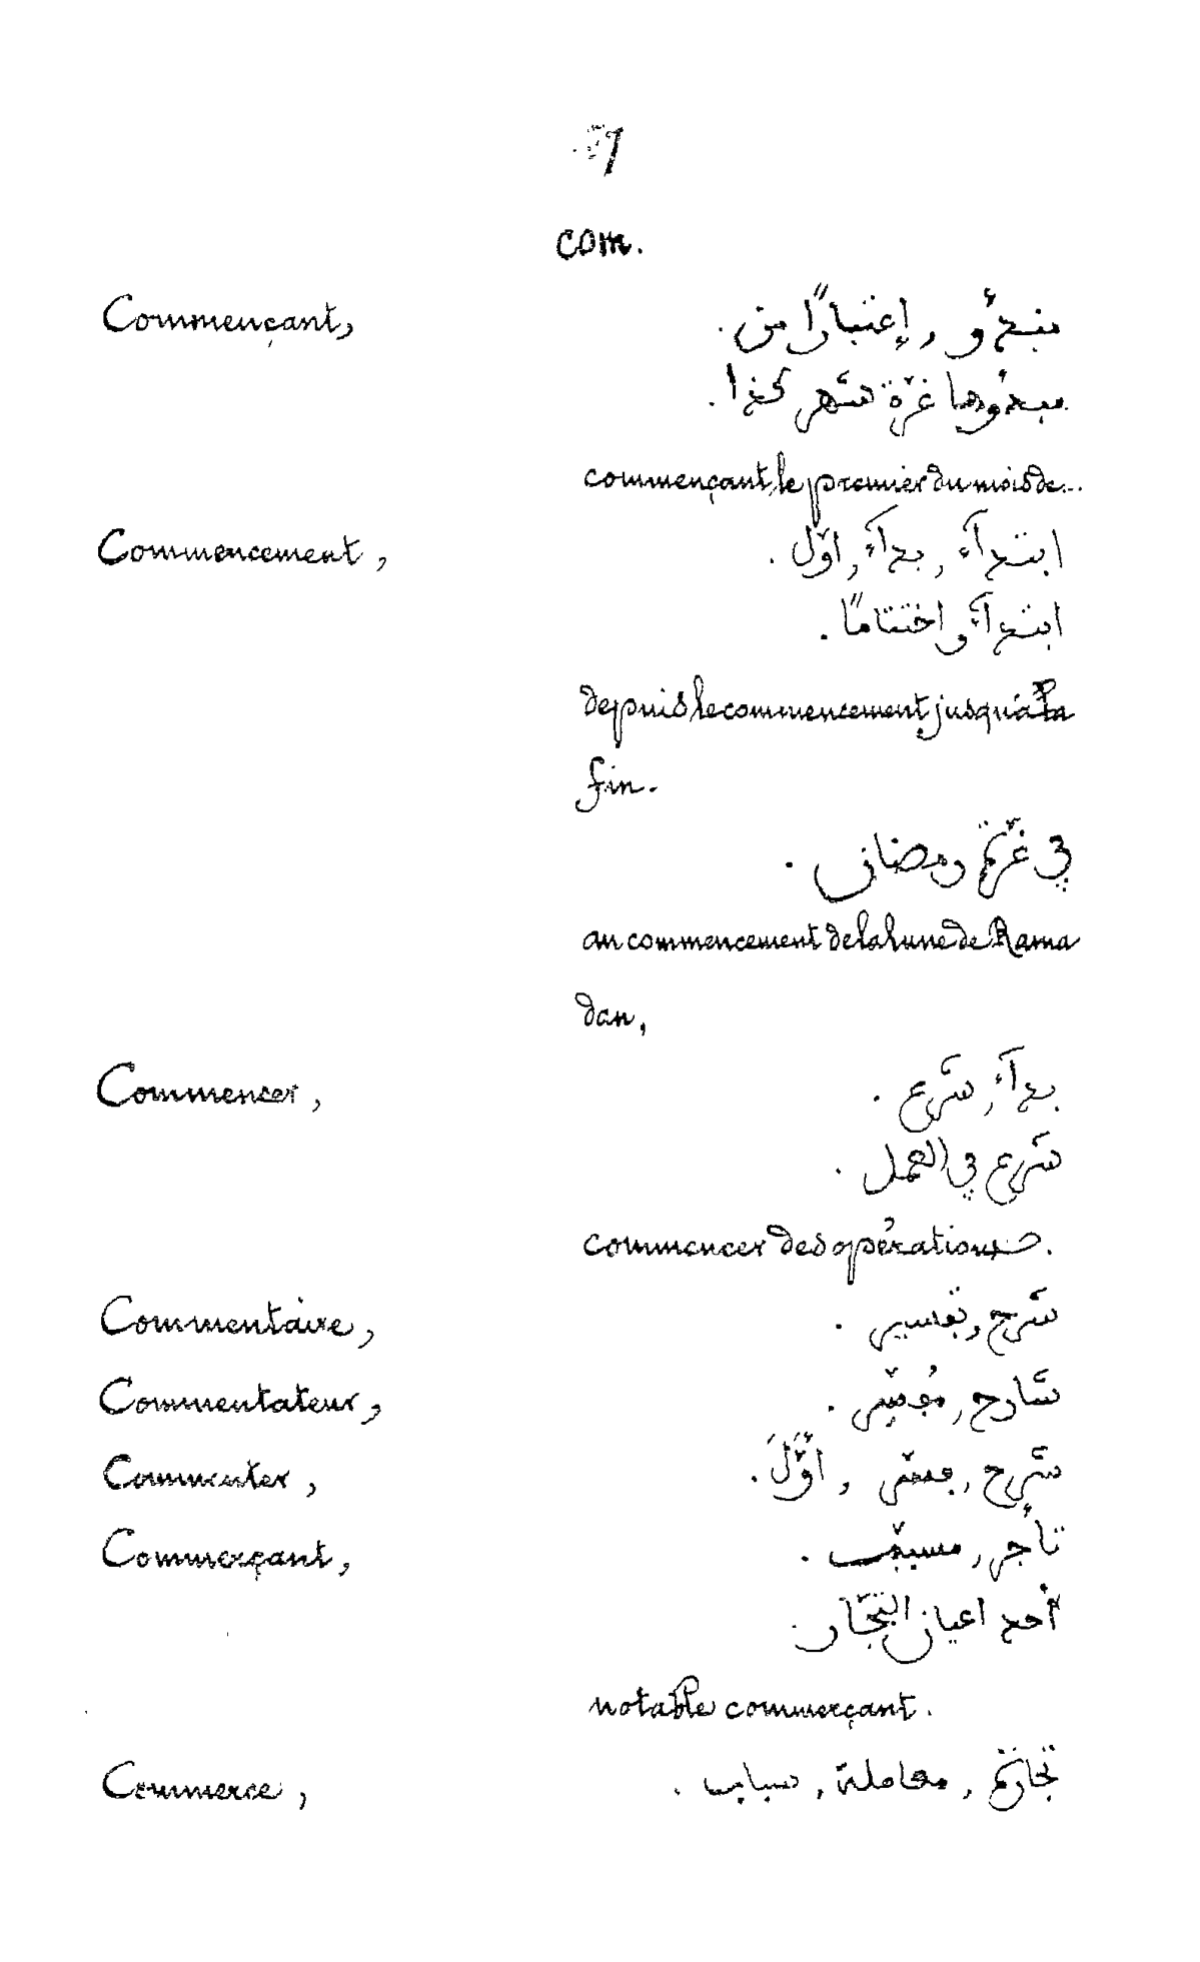 com.
Commençant, مبدؤ, إعتبارًا من.
مبدؤها غرّة شهر كذا.
commençant le premier du mois de...
Commencement, ابتدآء, بدآء, اوّل.
ابتدآءً و اختتامًا.
depuis le commencement jusqu'à la
fin.
في غرّة رمضان.
au commencement de la lune de Rama
dan,
Commencer, بدآء, شرع.
شرع في العمل.
commencer des opérations.
Commentaire, شرح, تفسير.
Commentateur, شارح, مُفسّر.
Commenter, شرح, فسّر, أَوَّلَ.
Commerçant, تاجر, مسبّب.
أحد اعيان التجّار.
notable commerçant.
Commerce, تجارة, معاملة, سبايب.